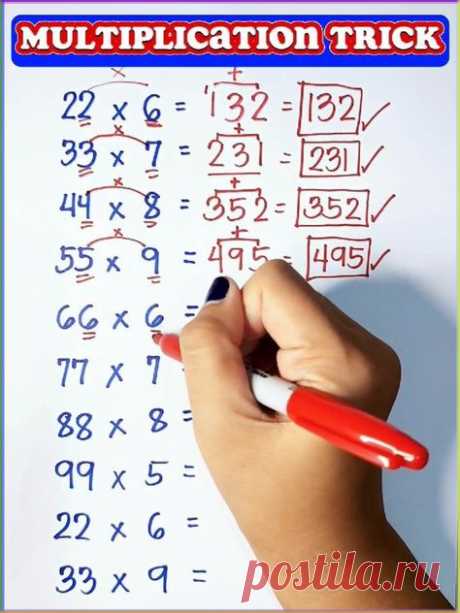 MULTIPLICATION TRICK
22 x 6 = 132 = 132 ✓
33 x 7 = 231 = 231 ✓
44 x 8 = 352 = 352 ✓
55 x 9 = 495 = 495 ✓
66 x 6 =
77 x 7
88 x 8 =
99 x 5 =
22 x 6 =
33 x 9 =
postila.ru